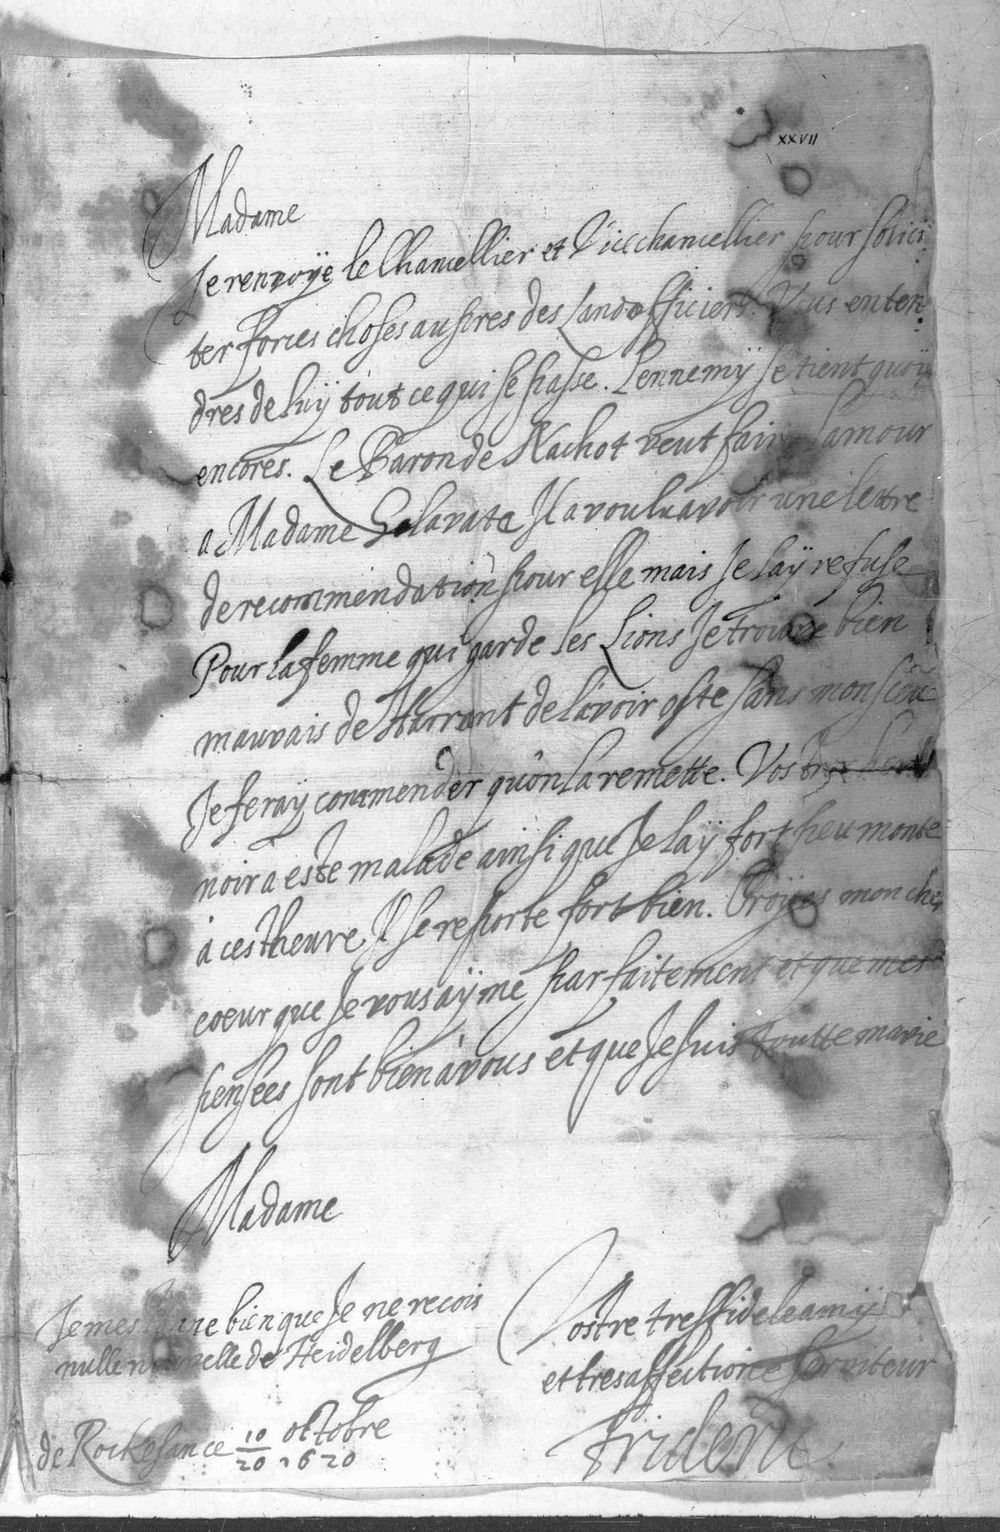 XXVII
Madame
Je renvoÿe le Chancellier et Vicechancellier pour solici
ter forces choses aupres des Landofficiers. Vous enten
dres de luÿ tout ce qui se passe. Lennemÿ se tient quoÿ
encores. Le Baron de Nachot veut faire lamour
a Madame Il a voulu avoir une lettre
de recommendation pour elle mais Je laÿ refuse
Pour la femme qui garde les Lions Je trouve bien
mauvais de Harrant de lavoir oste sans mon sceu
Je feraÿ commender quon la remette. Vostre
noir a este malade ainsi que Je laÿ fort peu monte
a cest heure Il se reporte fort bien. Croÿes mon cher
coeur que Je vous aÿme parfaitement et que mes
pensees sont bien a vous et que Je suis toutte ma vie
Madame
Je mestonne bien que Je ne recois
nulle nouvelle de Heidelberg
Vostre tresfidele amÿ
et tresaffectione serviteur
de Rockesance 10/20 octobre 1620
Frideric